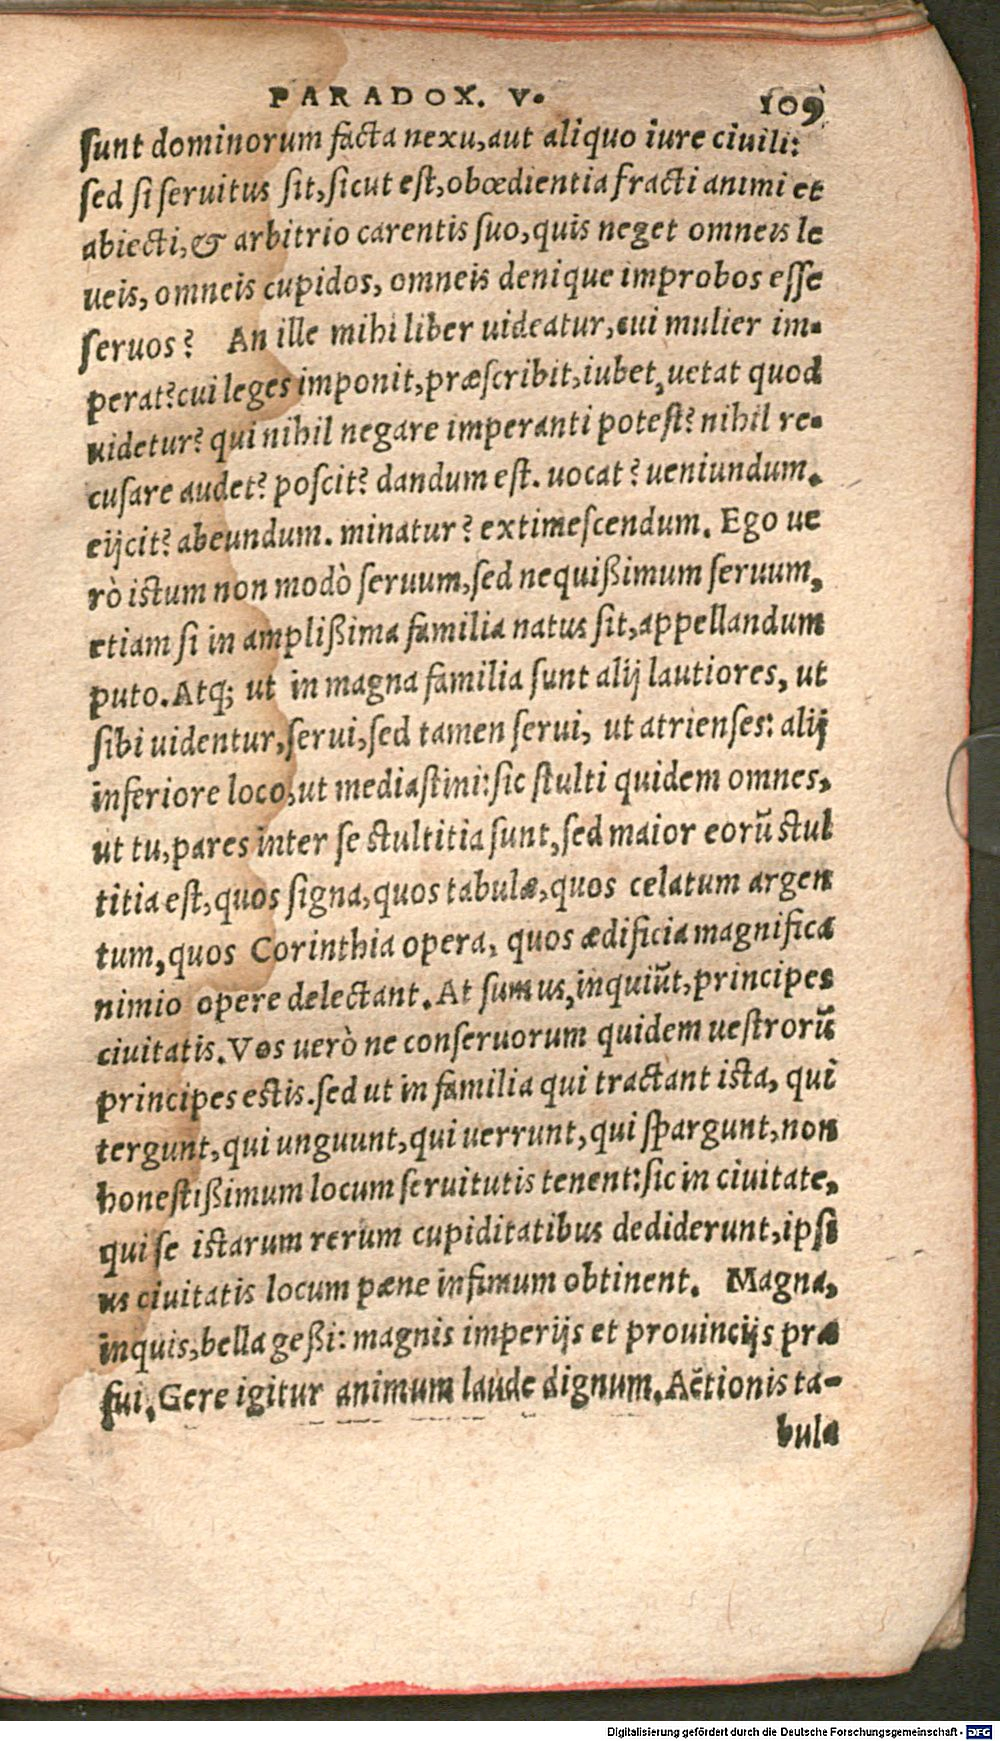 PARADOX. V. 109
sunt dominorum facta nexu, aut aliquo iure ciuili:
sed si seruitus sit, sicut est, obœdientia fracti animi et
abiecti, & arbitrio carentis suo, quis neget omneis le
ueis, omneis cupidos, omneis denique improbos esse
seruos? An ille mihi liber uideatur, cui mulier im-
perat? cui leges imponit, præscribit, iubet, uetat quod
uidetur? qui nihil negare imperanti potest? nihil re-
cusare audet? poscit? dandum est. uocat? ueniundum.
eijcit? abeundum. minatur? extimescendum. Ego ue
rò istum non modò seruum, sed nequißimum seruum,
etiam si in amplißima familia natus sit, appellandum
puto. Atq; ut in magna familia sunt alij lautiores, ut
sibi uidentur, serui, sed tamen serui, ut atrienses: alij
inferiore loco, ut mediastini: sic stulti quidem omnes,
ut tu, pares inter se stultitia sunt, sed maior eorũ stul
titia est, quos signa, quos tabulæ, quos celatum argen
tum, quos Corinthia opera, quos ædificia magnifica
nimio opere delectant. At sumus, inquiũt, principes
ciuitatis. Vos uerò ne conseruorum quidem uestrorũ
principes estis. sed ut in familia qui tractant ista, qui
tergunt, qui unguunt, qui uerrunt, qui spargunt, non
honestißimum locum seruitutis tenent: sic in ciuitate,
qui se istarum rerum cupiditatibus dediderunt, ipsi
us ciuitatis locum pæne infimum obtinent. Magna,
inquis, bella geßi: magnis imperijs et prouincijs præ
fui. Gere igitur animum laude dignum. Aëtionis ta-
bula
Digitalisierung gefördert durch die Deutsche Forschungsgemeinschaft - DFG